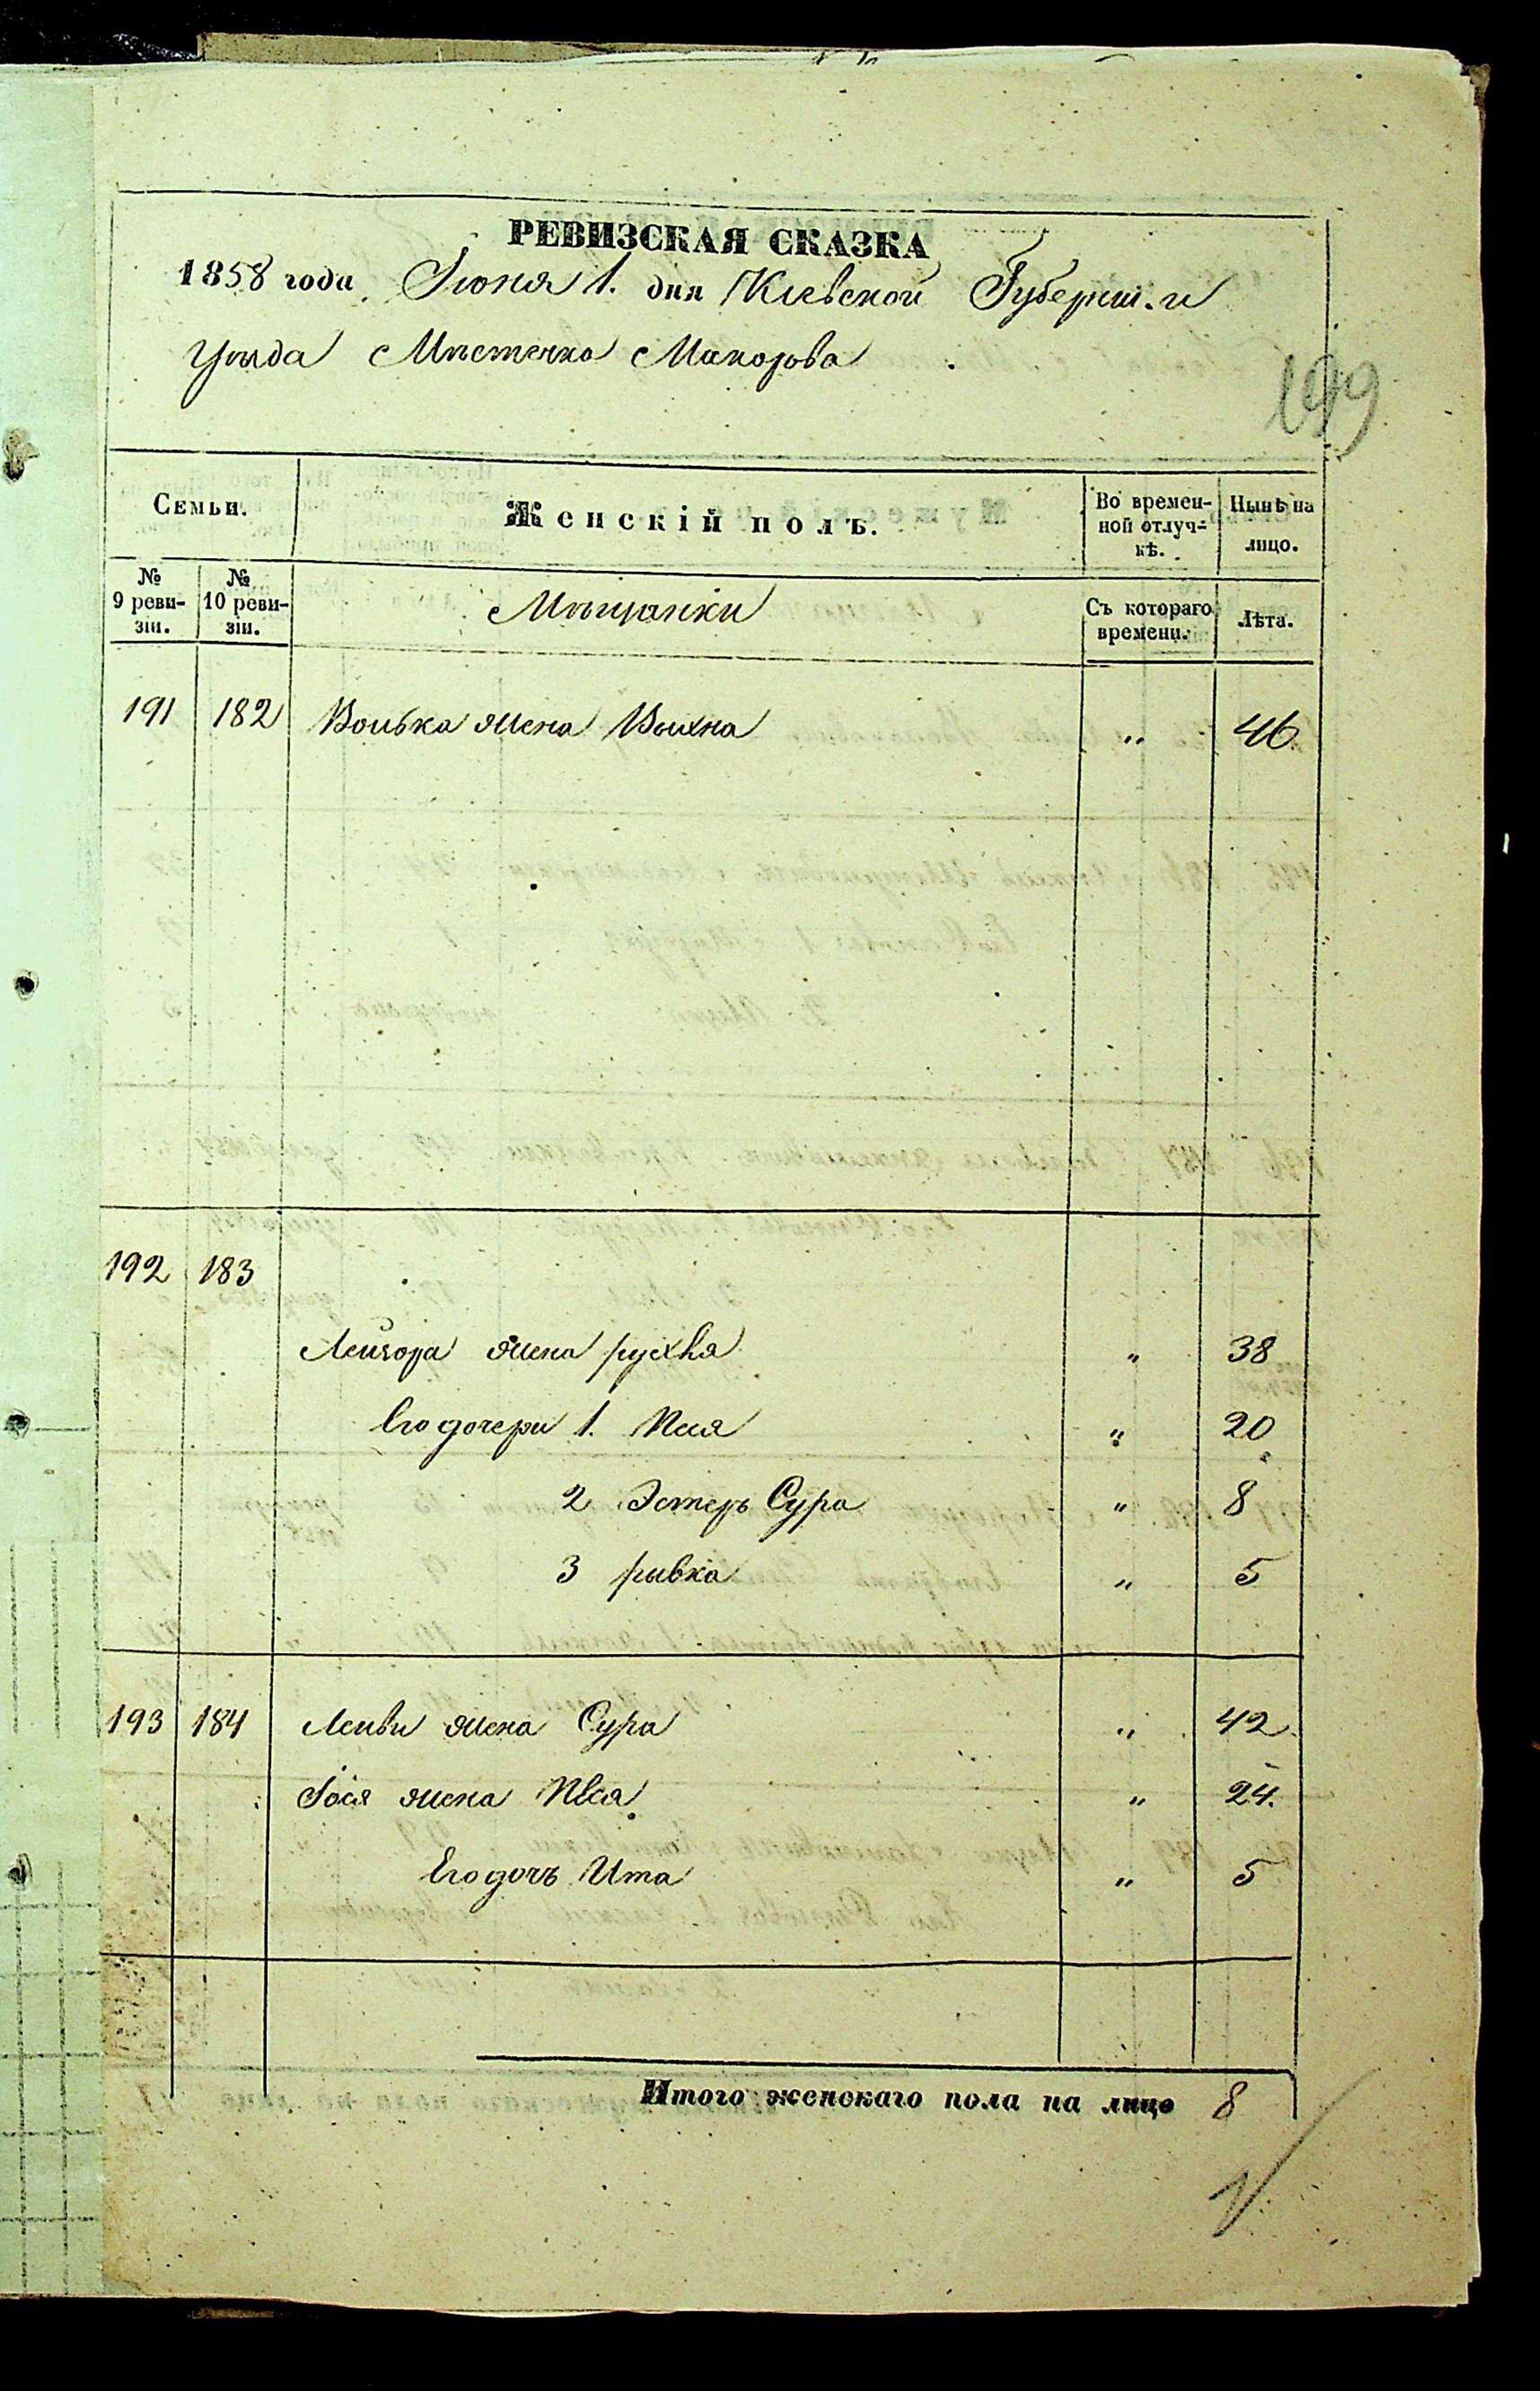 199
РЕВИЗСКАЯ СКАЗКА
1858 года Іюня 1. дня Кіевской Губерніи
Уѣзда Мѣстечка Макарова
Семьи. Женскій полъ. Во времен-ной отлуч-кѣ. Нынѣ на лицо.
№ 9 реви-зіи. № 10 реви-зіи. Мѣщанки Съ котораго времени. Лѣта.
191 182 Волька жена Выхна " 46.
192 183
Лейзора жена рухля " 38
Его дочери 1. Песя " 20
2 Эстеръ Сура " 8
3 рывка " 5
193 184 Лейви жена Сура " 42.
Іося жена Песя " 24.
Его дочь Ита " 5
Итого женскаго пола на лицо 8